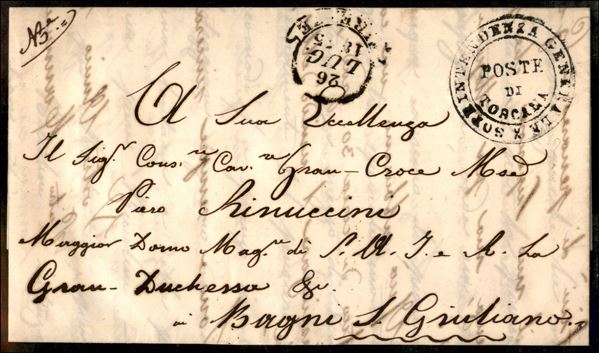 26
LUG
1845
SOPRINTENDENZA GENERALE
POSTE
DI
TOSCANA
A Sua Eccellenza
Il Sig.r Cons.re Cav.re Gran-Croce M.se
Piero Rinuccini
Maggior Domo Mag.re di S. A. I. e R. La
Gran-Duchessa &c.
ai Bagni S. Giuliano